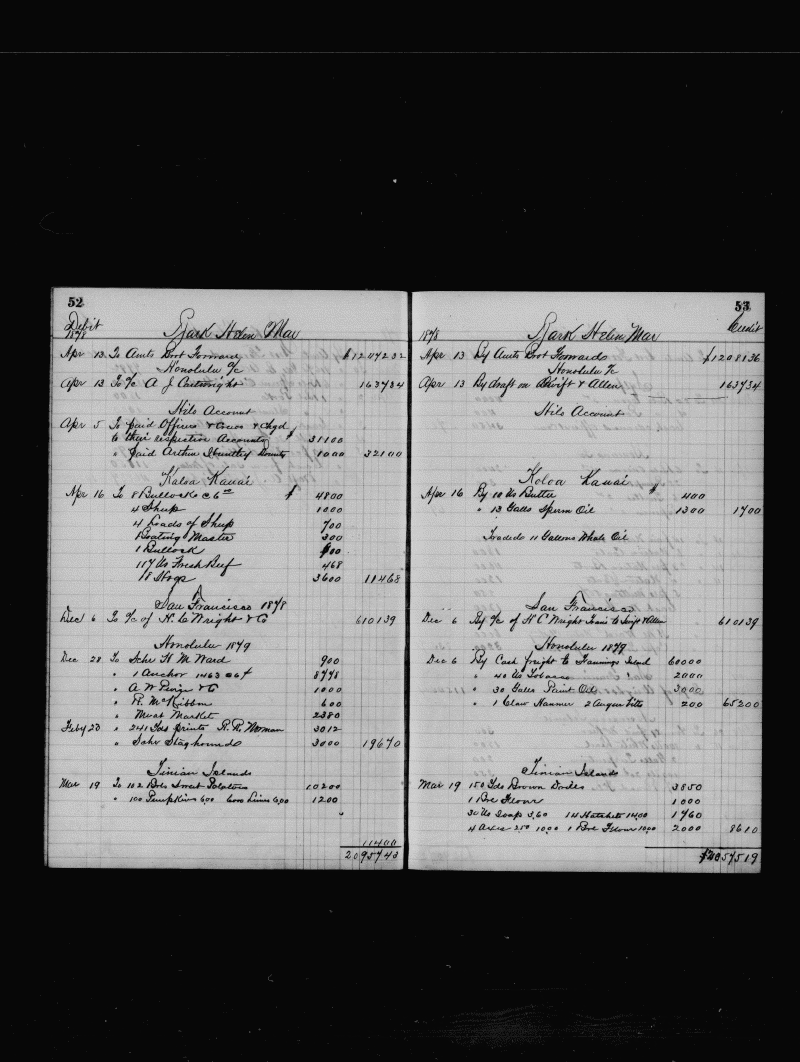 52
Debit
1878 Bark Helen Mar
Apr 13 To Amts Brot Forward $1204232
Honolulu a/c
Apr 13 To a/c A J Cartwright 163434
Hilo Account
Apr 5 To paid Officers & Crew & chgd
to their respective Accounts $ 31100
" paid Arthur Huntley Bounty 1000 32100
Koloa Kauai
Apr 16 To 8 Bullocks @ 6 00 $ 4800
4 Sheep 1000
4 Loads of Sheep 700
Boating Master 300
1 Bullock 600
117 lbs Fresh Beef 468
18 Hogs 3600 11468
San Francisco 1878
Dec 6 To a/c of H. C. Wright & Co 610139
Honolulu 1879
Dec 28 To Schr H M Ward 900
" 1 Anchor 1463 @ 6¢ 8778
" A W Peirge & Co 1000
" R. McKibbin 600
" Meat Market 2380
Feby 23 " 241 Yds prints R. R. Norman 3012
" Schr Staghound 3000 19670
Tinian Islands
Mar 19 To 102 Bbls Sweet Potatoes 10200
" 100 Pumpkins 6,00 6000 Limes 6,00 1200
11400
2095743
53
Credit
1878 Bark Helen Mar
Apr 13 By Amts Brot Forward $1208136
Honolulu a/c
Apr 13 By draft on Swift & Allen 163434
Hilo Account
Koloa Kauai
Apr 16 By 10 lbs Butter $ 400
" 13 Galls Sperm Oil 1300 1700
Traded 11 Gallons Whale Oil
San Francisco
Dec 6 By a/c of H C Wright to Swift & Allen 610139
Honolulu 1879
Dec 6 By Cash freight to Fannings Island 60000
" 40 lbs Tobacco 2000
" 30 Galls Paint Oil 3000
" 1 Claw Hammer 2 Auger Bitts 200 65200
Tinian Islands
Mar 19 150 Yds Brown Drills 3850
1 Bbl Flour 1000
30 lbs Soap 3,60 14 Hatchets 14,00 1760
4 Axes 2.50 10.00 1 Bbl Flour 10.00 2000 8610
$2057519